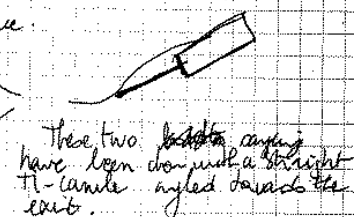 ue.
These two sayings
have been done with a straight
TI-canule angled towards the
exit.